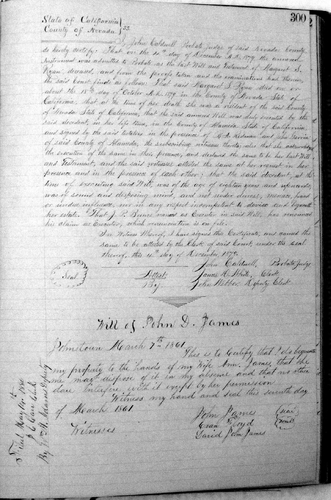 300
State of California
County of Nevada } ss.
I John Caldwell Probate Judge of said Nevada County
do hereby certify: That on the 10th day of November A.D. 1879, the annexed
instrument was admitted to Probate as the last Will and Testament of Margaret S.
deceased, and from the proofs taken and the examination had therein
the said Court finds as follows: That said Margaret S. died on or
about the 15th day of October A.D. 1879, in the County of Nevada State of
California, that at the time of her death she was a resident of the said County
of Nevada State of California, that the said annexed Will was duly executed by the
said decedent in her lifetime, in the County of Nevada, State of California,
and signed by the said testatrix in the presence of
of said County of Nevada, the subscribing witnesses thereto, also that she acknowledged
the execution of the same in their presence, and declared the same to be her last Will
and Testament, and the said witnesses attested the same at her request in her
presence and in the presence of each other; that the said decedent, at the
time of executing said Will, was of the age of eighteen years and upwards,
was of sound and disposing mind, and not under duress, menace, fraud
or undue influence, nor in any respect incompetent to devise and bequeath
her estate. That J. P. named as Executor in said Will, has renounced
his claim as Executor, which renunciation is on file.
In Witness Whereof, I have signed this Certificate, and caused the
same to be attested by the Clerk of said Court under the seal
thereof, the 10th day of November 1879.
Seal
John Caldwell, Probate Judge
Attest James K. White, Clerk
By John Webber Deputy Clerk
Will of John D. James
March 7th 1861
This is to Certify that I do bequeath
my property to the hands of my Wife Ann James that she
may dispose of it in my absence and that no other
dare interfere with it except by her permission.
Witness my hand and seal this seventh day
of March 1861
John James (seal)
Evan Floyd
David John James
Witnesses
Filed May 1st 1880
Clerk
By Deputy